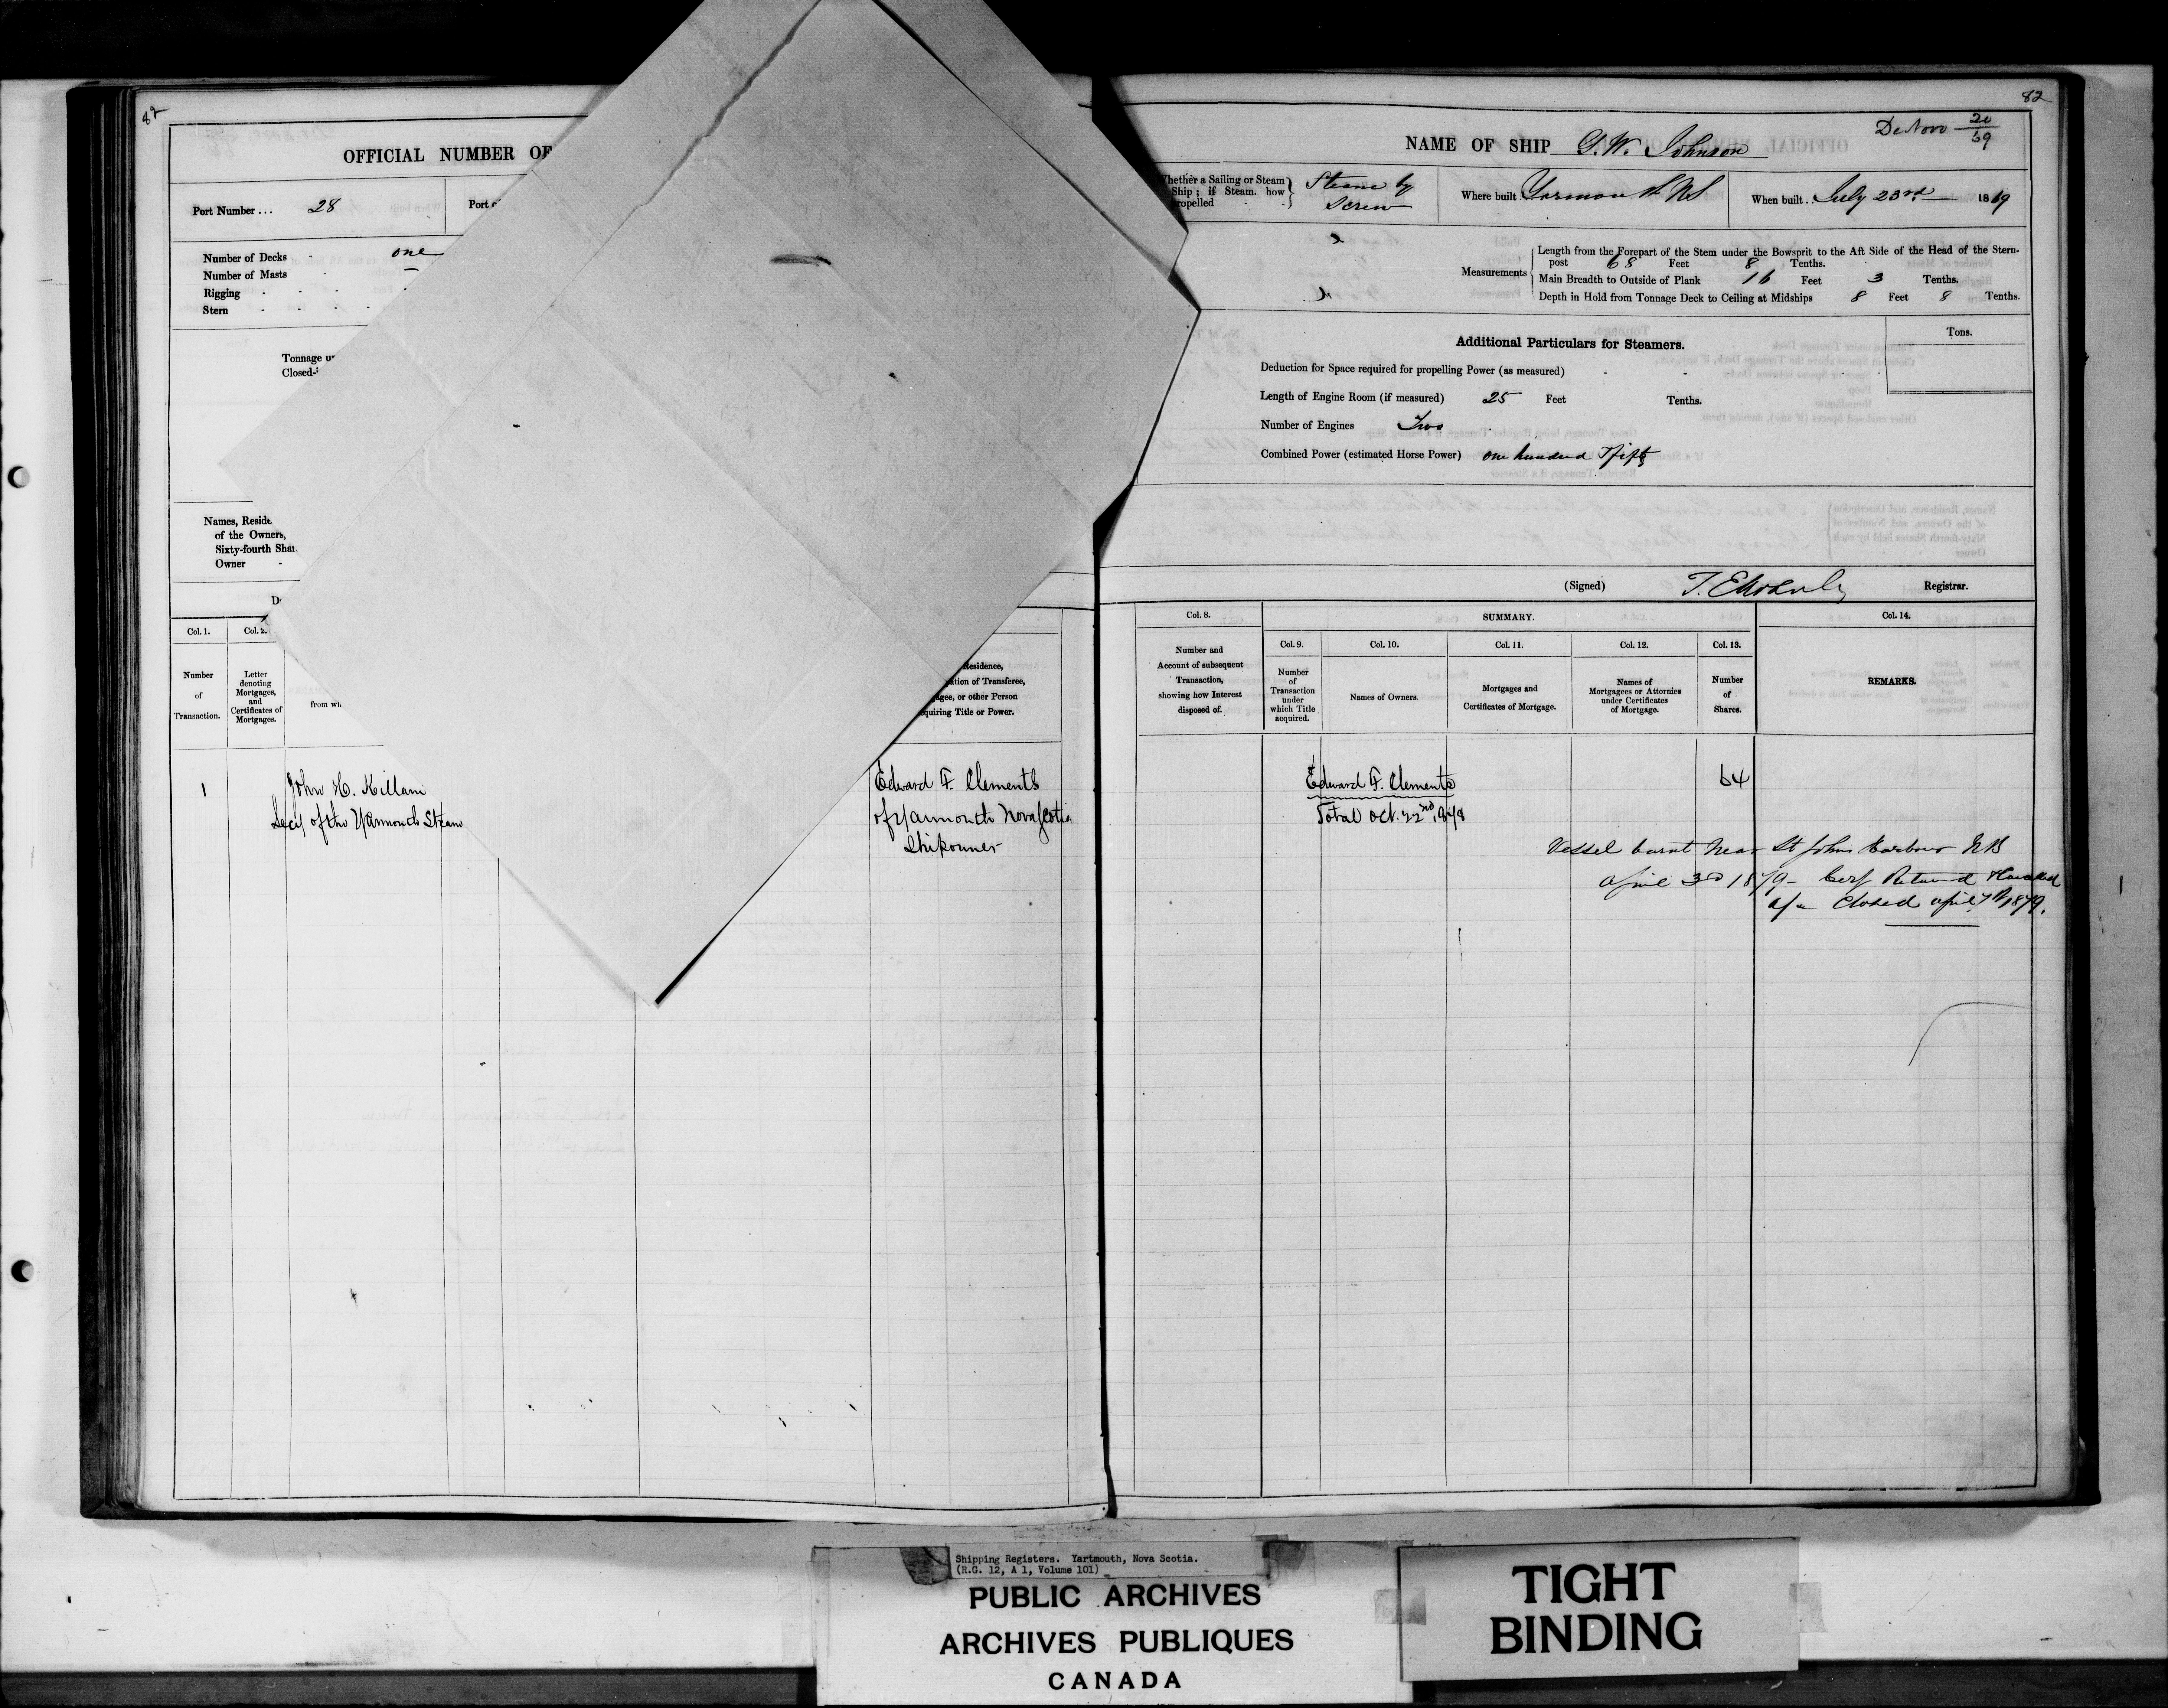 82
OFFICIAL NUMBER OF
Port Number ... 28
Port of
Number of Decks - one
Number of Masts
Rigging
Stern
Tonnage
Closed-
Names, Reside
of the Owners,
Sixty-fourth Sha
Owner
Col. 1.
Col. 2.
Number of Transaction.
Letter denoting Mortgages, and Certificates of Mortgages.
from
Residence,
ation of Transferee,
gagee, or other Person
quiring Title or Power.
1
John H. Killam
Secy of the Yarmouth Steam
Edward F. Clements
of Yarmouth Nova Scotia
Shipowner
82
De Novo 20/69
NAME OF SHIP G. W. Johnson
Whether a Sailing or Steam Ship; if Steam, how propelled
Steam by Screw
Where built Yarmouth NS
When built .. July 23rd 1869
Measurements
Length from the Forepart of the Stem under the Bowsprit to the Aft Side of the Head of the Stern-
post 68 Feet 8 Tenths.
Main Breadth to Outside of Plank 16 Feet 3 Tenths.
Depth in Hold from Tonnage Deck to Ceiling at Midships 8 Feet 8 Tenths.
Additional Particulars for Steamers.
Tons.
Deduction for Space required for propelling Power (as measured)
Length of Engine Room (if measured) 25 Feet Tenths.
Number of Engines Two
Combined Power (estimated Horse Power) one hundred & fifty
(Signed) Registrar.
Col. 8.
SUMMARY.
Col. 14.
Col. 9.
Col. 10.
Col. 11.
Col. 12.
Col. 13.
Number and Account of subsequent Transaction, showing how Interest disposed of.
Number of Transaction under which Title acquired.
Names of Owners.
Mortgages and Certificates of Mortgage.
Names of Mortgagees or Attornies under Certificates of Mortgage.
Number of Shares.
REMARKS.
Edward F. Clements
64
Total Oct. 22nd, 1878
Vessel burnt near St John Harbour NB
April 3rd 1879 - Cerf Returned & Cancelled
a/c Closed april 7th 1879.
Shipping Registers. Yartmouth, Nova Scotia.
(R.G. 12, A 1, Volume 101)
PUBLIC ARCHIVES
ARCHIVES PUBLIQUES
CANADA
TIGHT
BINDING